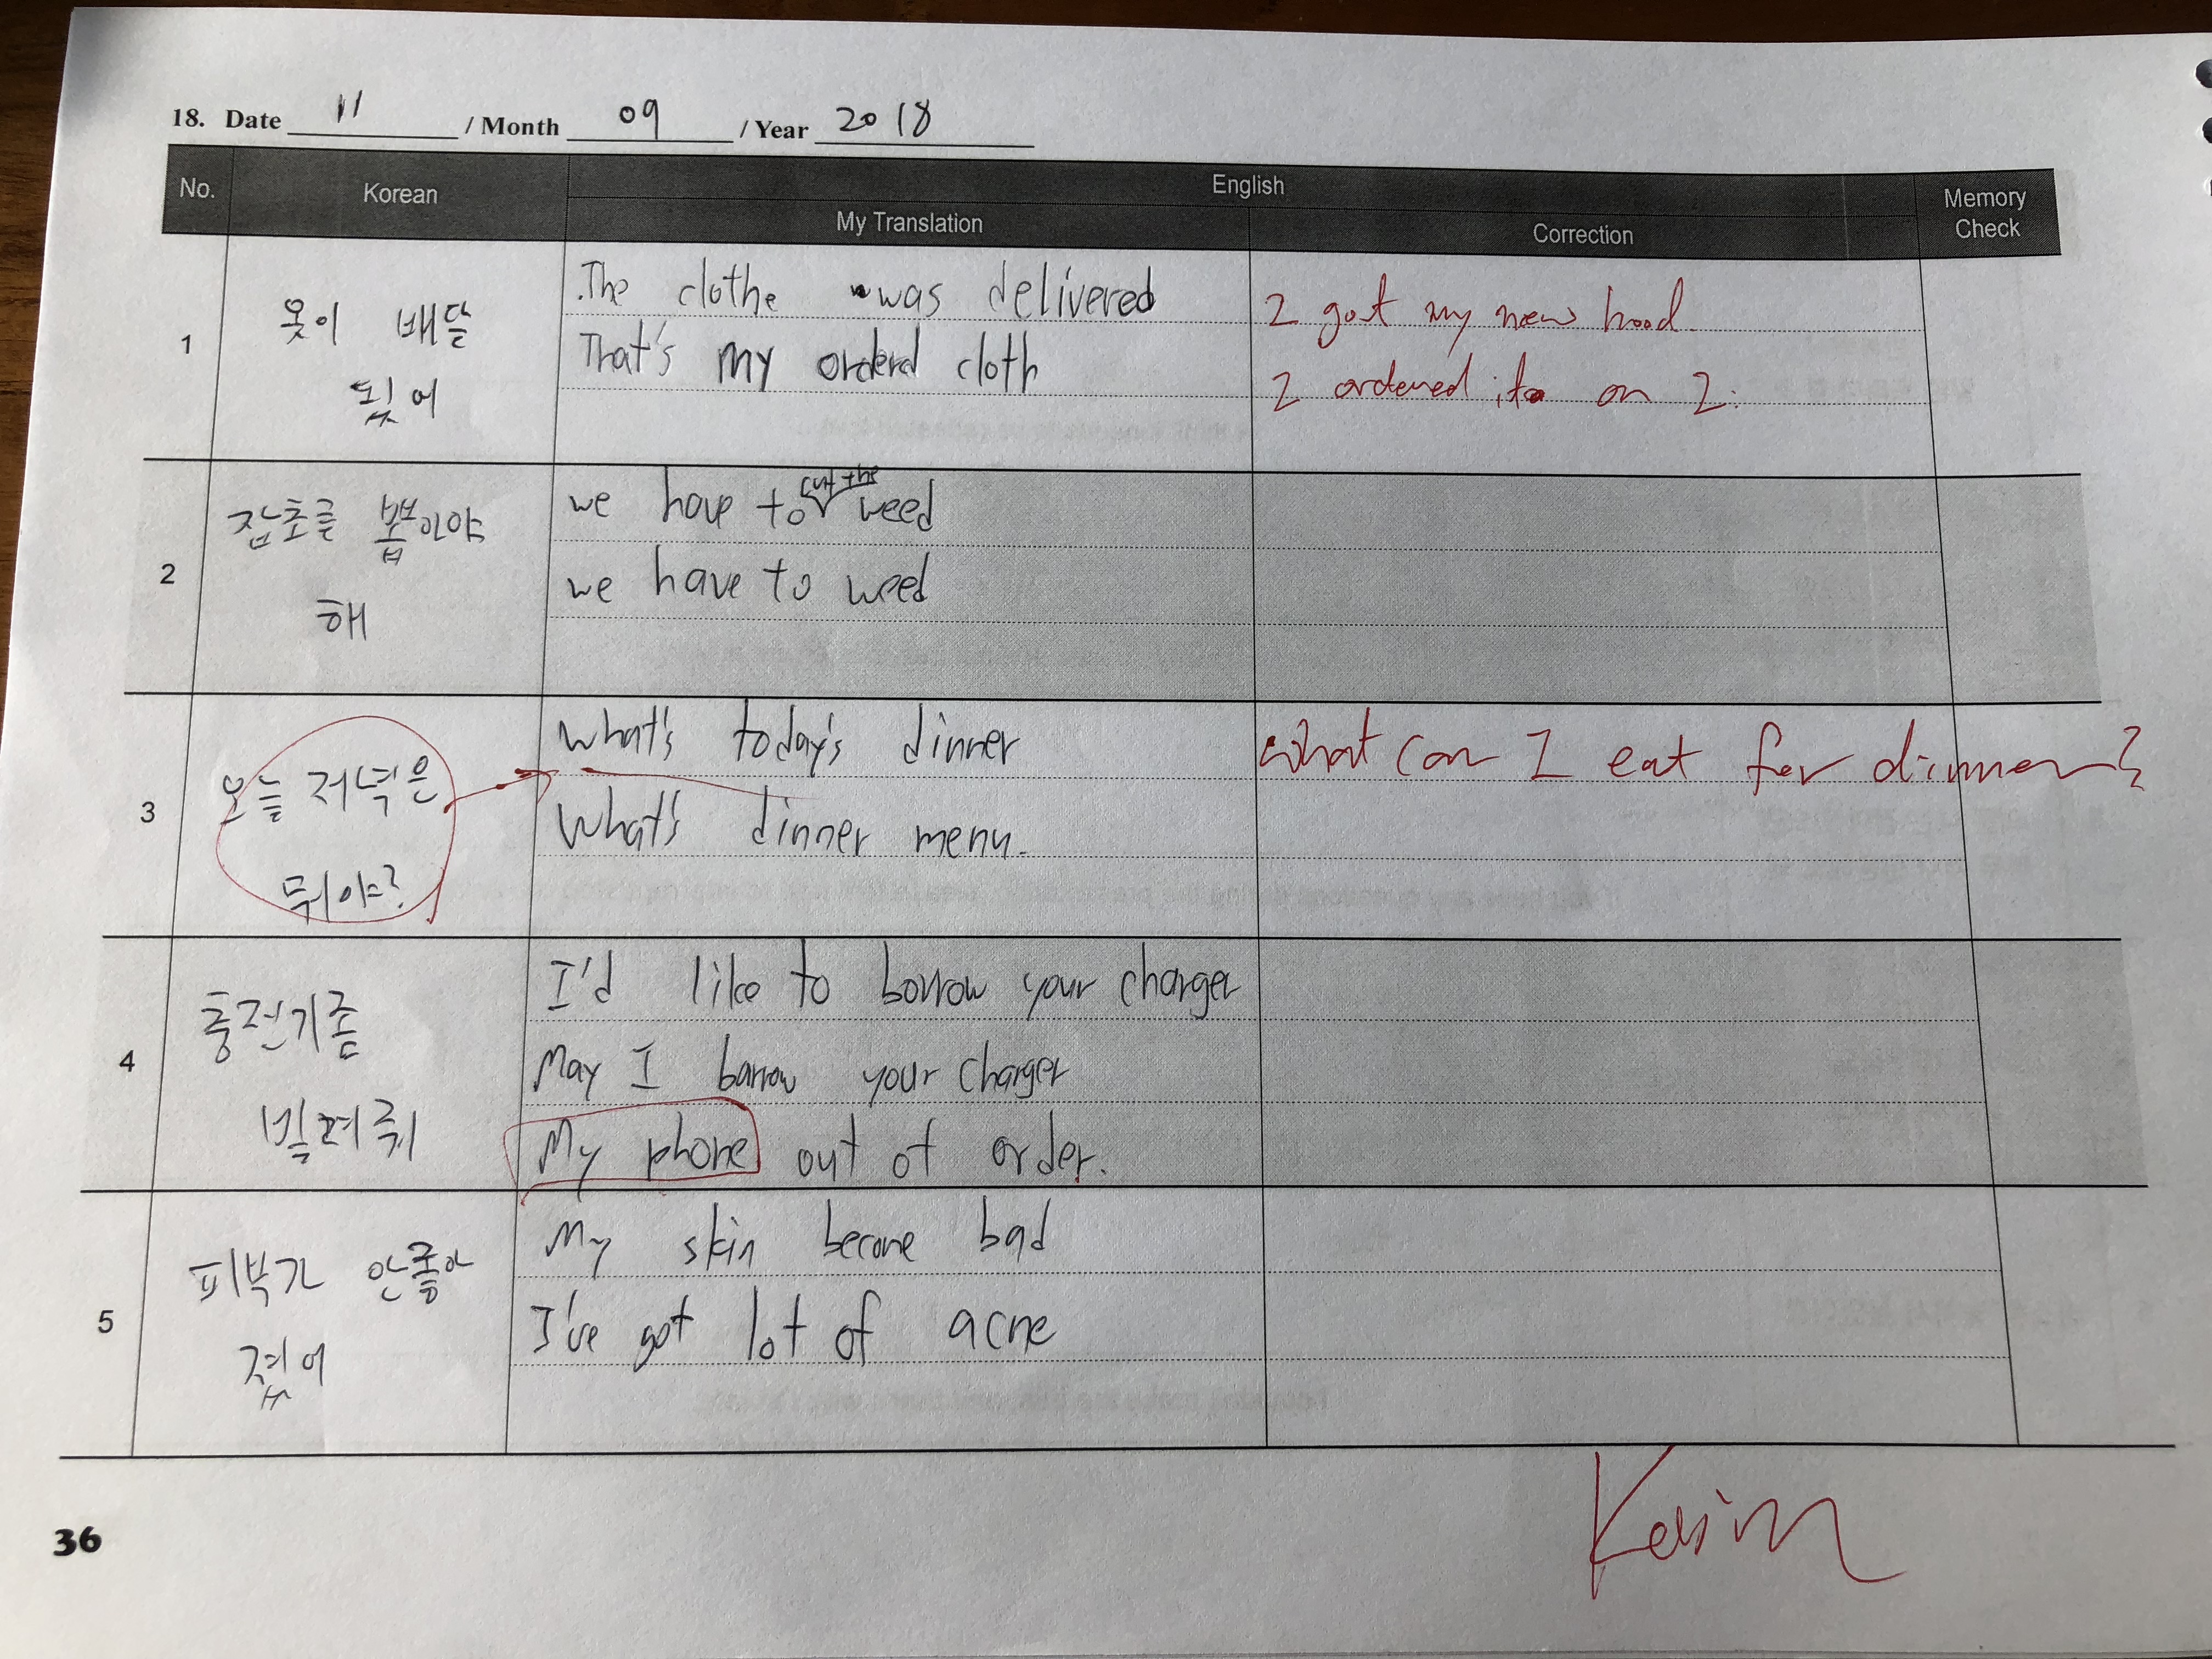 18. Date 11 / Month 09 / Year 2018
No. Korean English Memory Check
My Translation Correction
1
옷이 배달
됬어
.The clothe was delivered
That's my orderd cloth
I got my new hood.
I ordered it on I.
2
잡초를 뽑아야
해
we have to cut the weed
we have to weed
3
오늘 저녁은
뭐야?
What's today's dinner
What's dinner menu.
What can I eat for dinner?
4
충전기좀
빌려줘
I'd like to borrow your charger
May I barrow your charger
My phone out of order.
5
피부가 안좋아
졌어
My skin become bad
I've got lot of acne
36